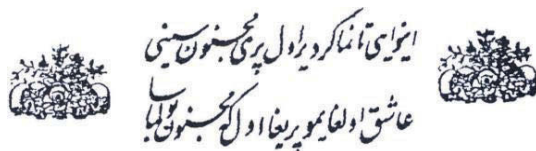 ای نوایی تانماکردیر اول پری مجنون سینی
عاشق اولغایمو پریغا اول که مجنون بولماسا